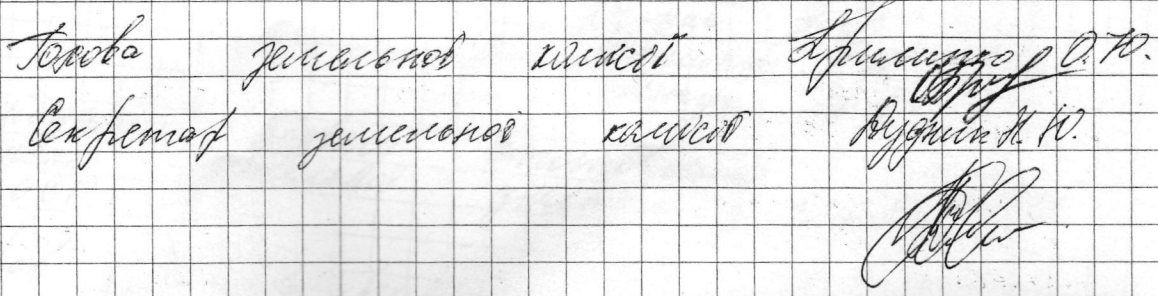 Голова земельної комісії О.Ю.
Секретар земельної комісії Дудник Н.Ю.